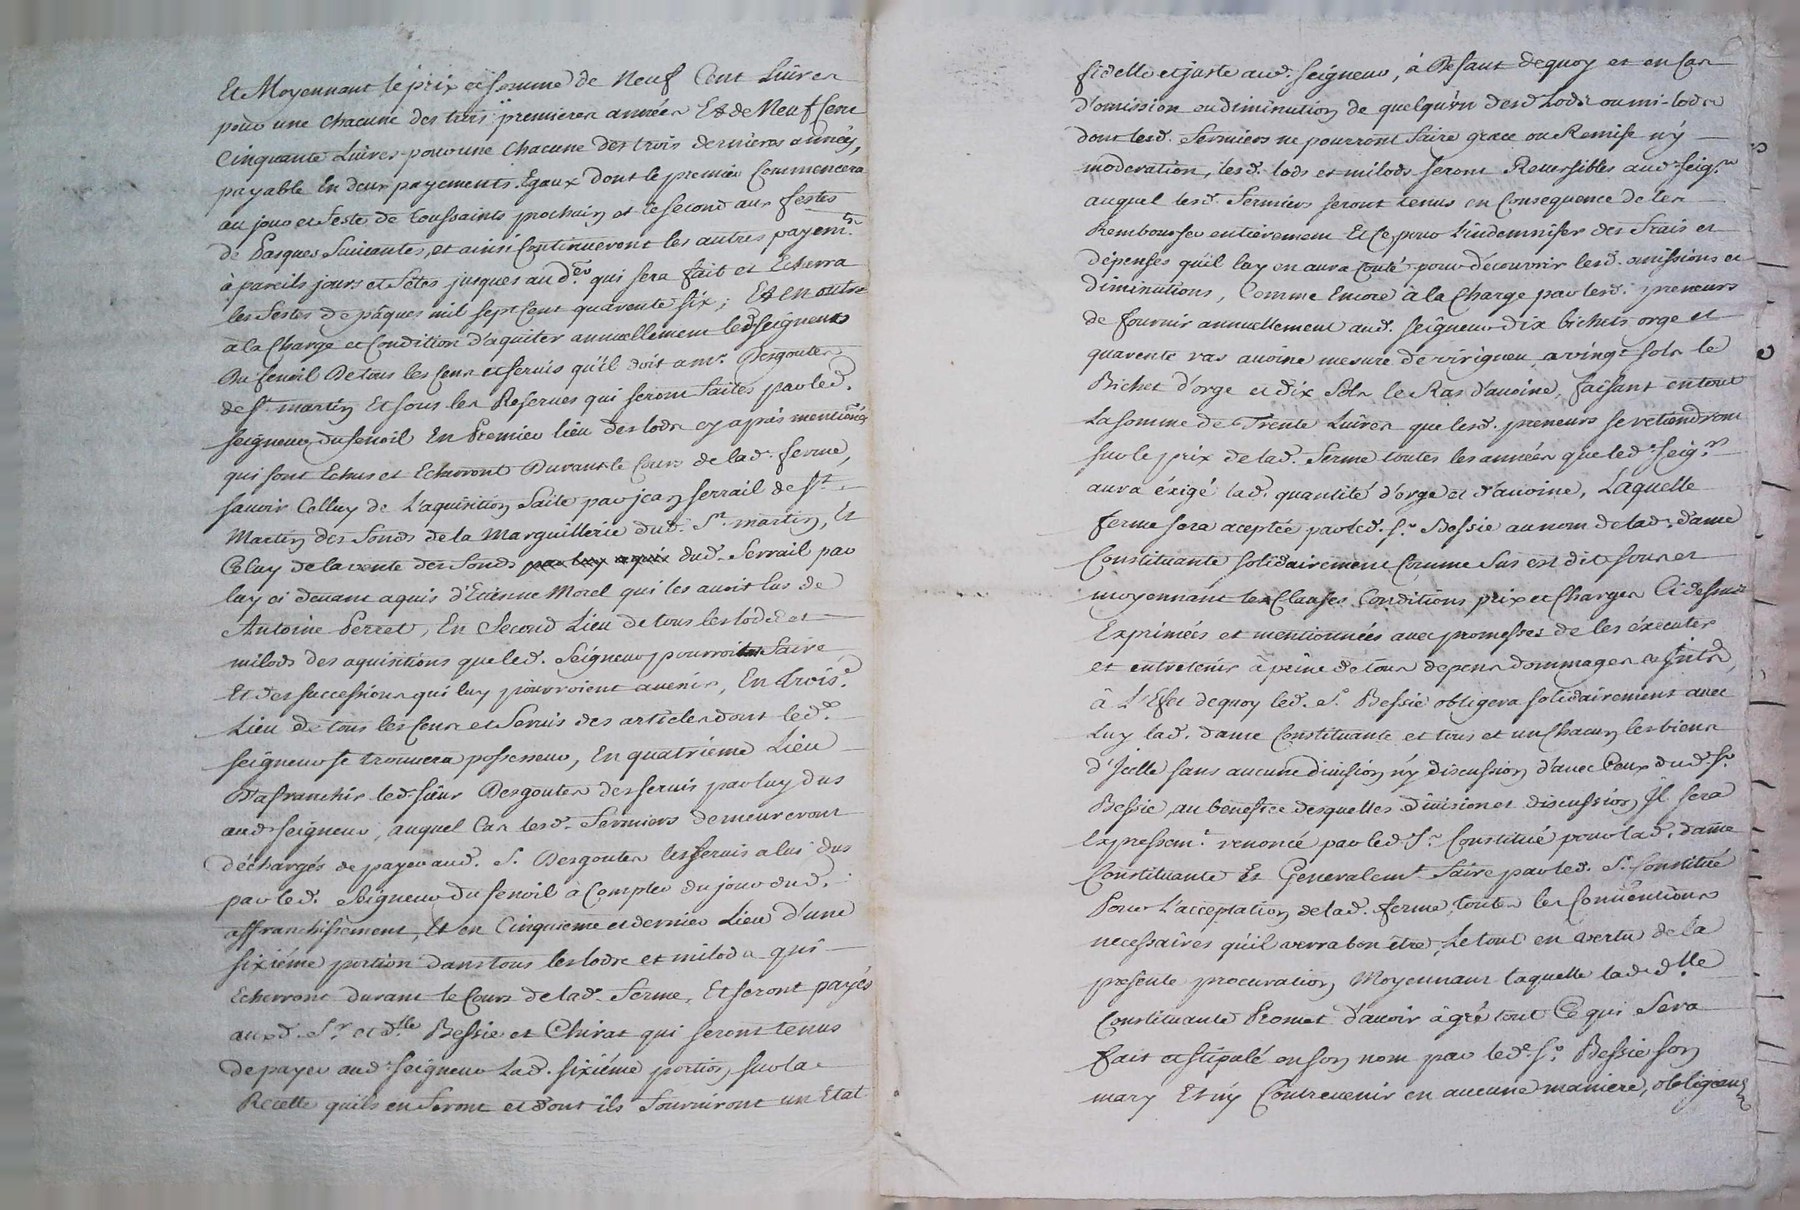 Et Moyennant le prix et somme de Neuf Cent Livres
pour une chacune des trois premieres années Et de Neuf Cent
Cinquante Livres pour une chacune des trois dernieres années,
payable En deux payements Egaux dont le premier Commencera
au jour et feste de toussaints prochain et le second aux festes
de Pasques Suivantes, et ainsi Continueront les autres payemts.
à pareils jours et fêtes jusques au der. qui sera fait et Echerra
les festes de pâques mil sept Cent quarente six; Et En outre
à la Charge et Condition d'aquiter annuellement led. seigneur
Du fenoil De tous les Cens et servis qu'il doit a mr. Desgoutes
de St. martin Et sous les Reserves qui seront faites par led.
seigneur du fenoil En Premier lieu des lods cy après mentionés
qui sont Echus et Echerront Durant le Cours de lad. ferme,
savoir Celluy de L'aquisition faite par jean ferrail de St.
Martin des fonds de la Marguillerie dud. St. martin, Et
Celuy de la vente des fonds par luy aquis dud. ferrail par
luy ci devant aquis d'Etienne Morel qui les avoit lus de
Antoine Perret, En Second Lieu de tous les lods et
milods des aquisitions que led. Seigneur pourroit faire
Et des successions qui luy pourroient avenir, En trois.e
Lieu de tous les Cens et Servis des articles dont led.
seigneur se trouvera possesseur, En quatrième Lieu
D'afranchir led. sieur Desgoutes des servis par luy dus
aud. seigneur, auquel Cas lesd. fermiers demeureront
déchargés de payer aud. S. Desgoutes les servis a lui dus
par led. Seigneur du fenoil à Compter du jour dud.
affranchissement, Et en Cinquieme et dernier Lieu d'une
sixiéme portion dans tous les lods et milods qui
Echerront durant le Cours de lad. ferme, Et seront payés
auxd. Sr. et dlle Bessie et Chirat qui seront tenus
de payer aud. seigneur Lad. sixiéme portion sur la
Recette qu'ils en feront et dont ils fourniront un Etat
fidelle et juste aud. seigneur, à Defaut de quoy et en Cas
d'omission ou diminution de quelqu'un desd. Lods ou mi-lods
dont lesd. fermiers ne pourront faire grace ou Remise n'y
moderation, lesd. lods et milods seront Reversibles aud. seigr.
auquel lesd. fermiers seront tenus en Consequence de les
Rembourser entièrement Et Ce, pour L'indemniser des frais et
dépenses qu'il luy en aura Couté pour découvrir lesd. omissions et
diminutions, Comme Encore à la Charge par lesd. preneurs
de fournir annuellement aud. seigneur dix bichets orge et
quarente ras avoine mesure de virigneu a vingt sols le
Bichet d'orge et dix sols le Ras d'avoine, faisant en tout
La somme de Trente Livres que lesd. preneurs se retiendront
sur le prix de lad. ferme toutes les années que led. seigr.
aura éxigé lad. quantité d'orge et d'avoine, Laquelle
ferme sera aceptée par led. Sr. Bessie au nom de lad. dame
Constituante solidairement Comme Sus est dit sous et
moyennant les Clauses, Conditions, prix et Charges Ci dessus
Exprimées et mentionnées avec promesses de les éxecuter
et entretenir à peine de tous depens dommages et Intds,
â L'Effet de quoy led. Sr. Bessie obligera solidairement avec
Luy lad. dame Constituante et tous et un Chacun les biens
d'Icelle sans aucune division n'y discussion d'avec Ceux dud. Sr.
Bessie, au bénéfice desquelles division et discussion Il sera
Expressemt. renoncé par led. Sr. Constitué pour lad. dame
Constituante Et Generalemt. faire par led. Sr. Constitué
Pour L'acceptation de lad. ferme, toutes les Conventions
necessaires qu'il verra bon être, Le tout en vertu de la
presente procuration, Moyennant laquelle lad. dlle
Constituante Promet d'avoir à gré tout Ce qui Sera
fait et stipulé en son nom par led. Sr. Bessie son
mary Et n'y Contrevenir en aucune maniere, obligeant